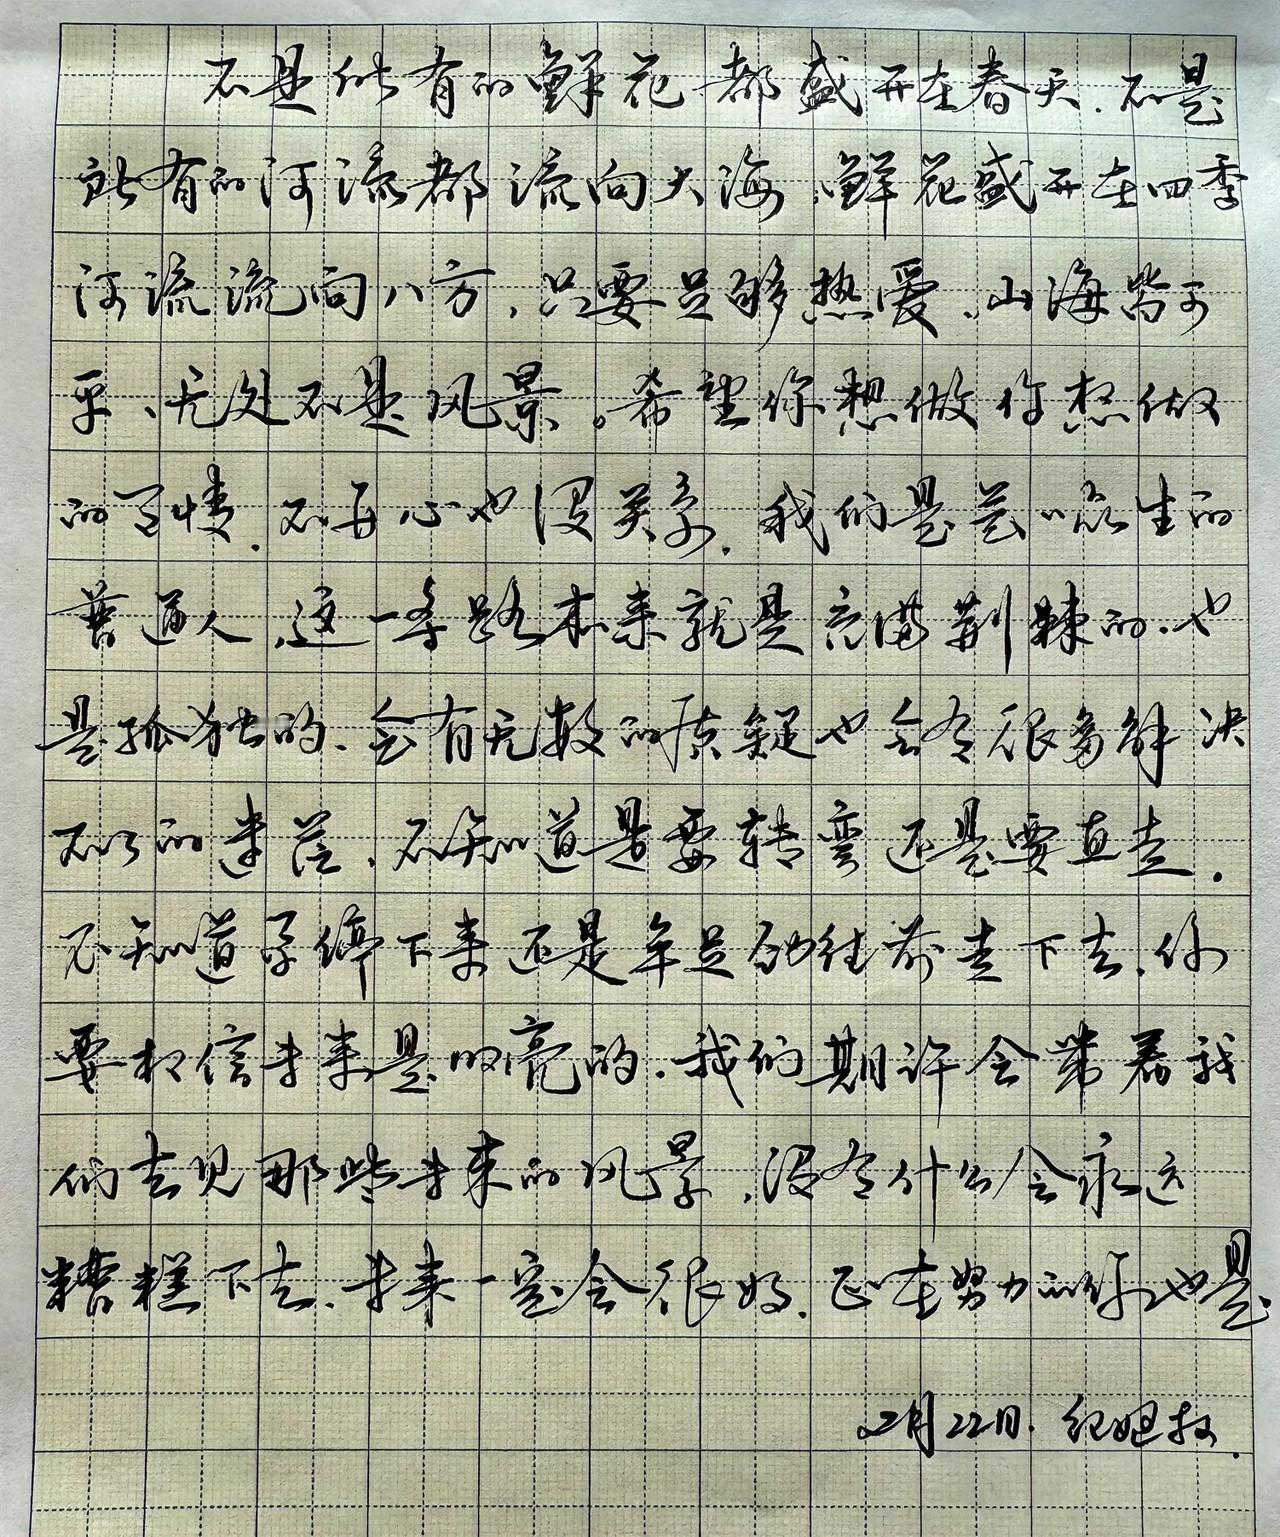 不是所有的鲜花都盛开在春天.不是
所有的河流都流向大海.鲜花盛开在四季
河流流向八方,只要足够热爱,山海皆可
平、无处不是风景。希望你想做你想做
的事情.不开心也没关系.我们是芸芸众生的
普通人,这一条路本来就是充满荆棘的.也
是孤独的、会有无数的质疑也会有很多解决
不了的迷茫,不知道是要转弯还是要直走.
不知道要停下来还是卒足劲往前走下去.你
要相信未来是明亮的.我们期许会带着我
们去见那些未来的风景,没有什么会永远
糟糕下去.未来一定会很好.正在努力的你也是
2月22日.